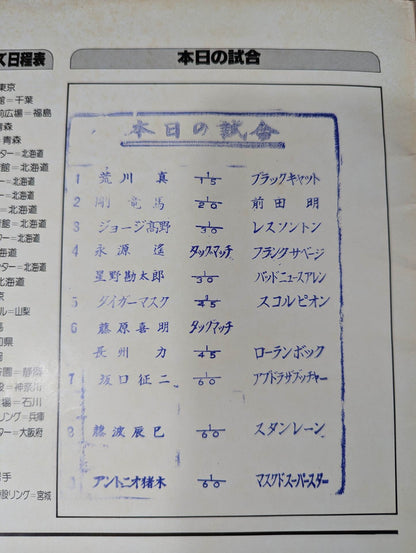 ズ日程表
東京
館=千葉
前広場=福島
青森
=青森
ター=北海道
館=北海道
ー=北海道
ー=北海道
=北海道
館=北海道
ター=北海道
北海道
ンター=北海道
=北海道
京
ル=山梨
島
知県
岡
館=静岡
設=神奈川
場=石川
リング=兵庫
ター=大阪府
岩手
設リング=宮城
本日の試合
本日の試合
1 荒川 真 1/15 ブラックキャット
2 剛 竜馬 1/20 前田 明
3 ジョージ高野 1/30 レス ソントン
4 永源 遙 タッグマッチ フランクサベージ
星野勘太郎 1/30 バッドニュースアレン
5 タイガーマスク 1/45 スコルピオン
6 藤原喜明 タッグマッチ
長州 力 1/45 ローランボック
7 坂口征二 1/60 アブドラザブッチャー
8 藤波辰巳 1/60 スタンレーン
9 アントニオ猪木 1/60 マスクドスーパースター